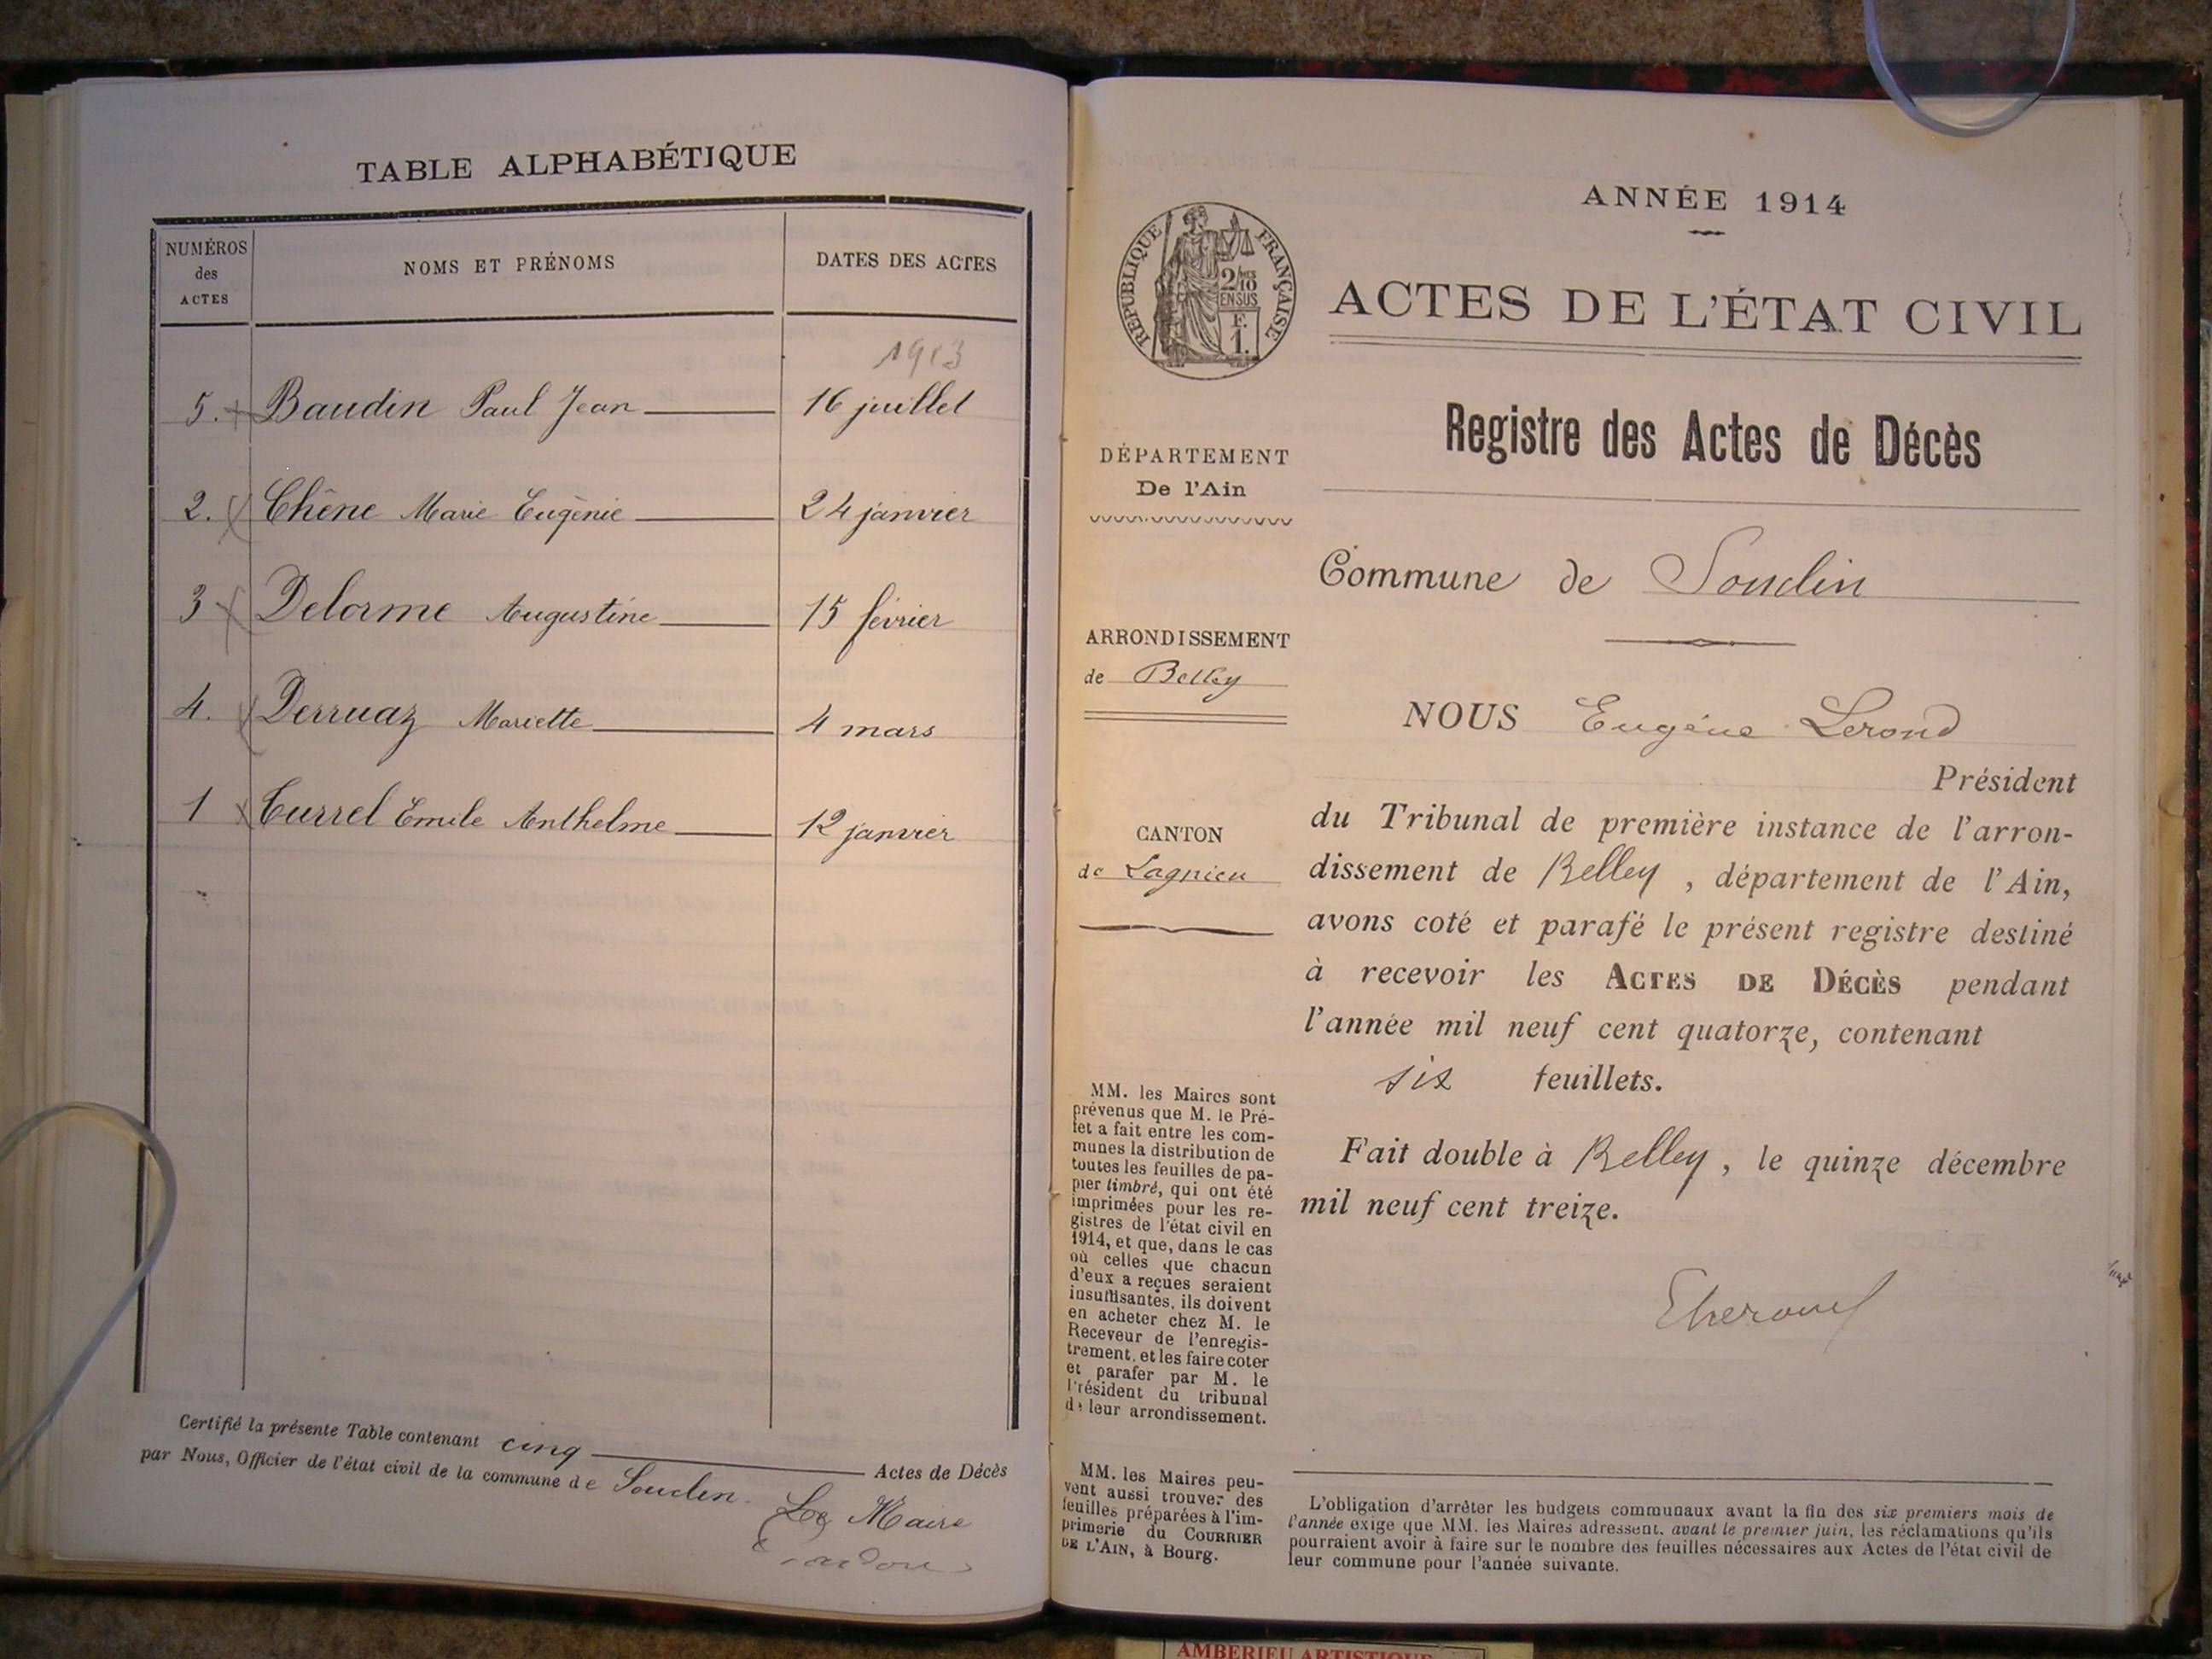 TABLE ALPHABÉTIQUE
NUMÉROS
des
ACTES
NOMS ET PRÉNOMS
DATES DES ACTES
1913
5. Baudin Paul Jean 16 juillet
2. Chêne Marie Eugènie 24 janvier
3 Delorme Augustine 15 février
4. Derruaz Mariette 4 mars
1 Currel Emile Anthelme 12 janvier
Certifié la présente Table contenant cinq Actes de Décès
par Nous, Officier de l'état civil de la commune de Souclin.
Le Maire
ANNÉE 1914
RÉPUBLIQUE FRANÇAISE
2/10 MES
EN SUS
F.
1.
ACTES DE L'ÉTAT CIVIL
Registre des Actes de Décès
DÉPARTEMENT
De l'Ain
Commune de Souclin
ARRONDISSEMENT
de Belley
NOUS Eugène Lerond
Président
du Tribunal de première instance de l'arron-
dissement de Belley, département de l'Ain,
avons coté et parafé le présent registre destiné
à recevoir les ACTES DE DÉCÈS pendant
l'année mil neuf cent quatorze, contenant
six feuillets.
CANTON
de Lagnieu
Fait double à Belley, le quinze décembre
mil neuf cent treize.
MM. les Maires sont
prévenus que M. le Pré-
fet a fait entre les com-
munes la distribution de
toutes les feuilles de pa-
pier timbré, qui ont été
imprimées pour les re-
gistres de l'état civil en
1914, et que, dans le cas
où celles que chacun
d'eux a reçues seraient
insuffisantes, ils doivent
en acheter chez M. le
Receveur de l'enregis-
trement, et les faire coter
et parafer par M. le
Président du tribunal
de leur arrondissement.
MM. les Maires peu-
vent aussi trouver des
feuilles préparées à l'im-
primerie du COURRIER
DE L'AIN, à Bourg.
L'obligation d'arrêter les budgets communaux avant la fin des six premiers mois de
l'année exige que MM. les Maires adressent, avant le premier juin, les réclamations qu'ils
pourraient avoir à faire sur le nombre des feuilles nécessaires aux Actes de l'état civil de
leur commune pour l'année suivante.
AMBERIEU ARTISTIQUE